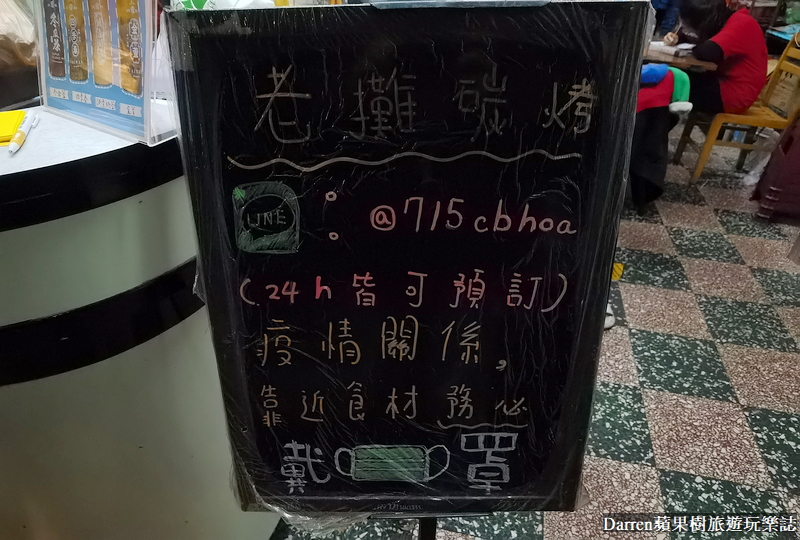 老攤碳烤
LINE : @715cbhoa
(24h皆可預訂)
疫情關係,
靠近食材務必
戴 罩
Darren蘋果樹旅遊玩樂誌